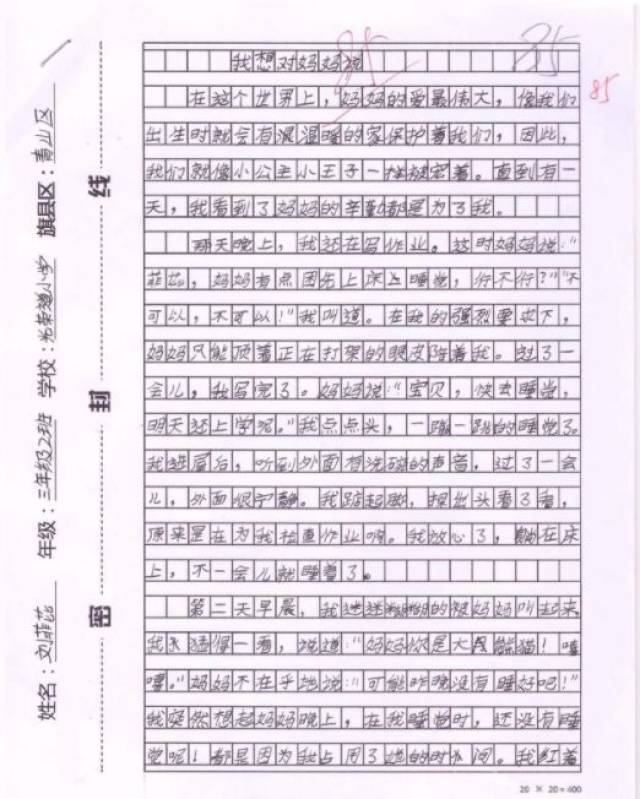 85
85
85
我想对妈妈说
在这个世界上，妈妈的爱最伟大，像我们
出生时就会有温暖的家保护着我们，因此，
我们就像小公主小王子一样被宠着。直到有一
天，我看到了妈妈的辛勤都是为了我。
那天晚上，我还在写作业。这时妈妈说："
菲菲，妈妈有点困先上床上睡觉，行不行？""不
可以，不可以！"我叫道。在我的强烈要求下，
妈妈只能顶着正在打架的眼皮陪着我。过了一
会儿，我写完了。妈妈说："宝贝，快去睡觉，
明天还上学呢。"我点点头，一蹦一跳的睡觉了。
我进屋后，听到外面有洗碗的声音，过了一会
儿，外面很宁静。我踮起脚，探出头看了看，
原来是在为我检查作业啊。我放心了，躺在床
上，不一会儿就睡着了。
第二天早晨，我迷迷糊糊的被妈妈叫起来，
我猛得一看，说道："妈妈你是大熊猫！嘻
嘻。"妈妈不在乎地说："可能昨晚没有睡好吧！"
我突然想起妈妈晚上，在我睡觉时，还没有睡
觉呢！都是因为我占用了她的时间。我红着
20 × 20 = 400
线
封
密
旗县区：青山区
学校：光荣道小学
年级：三年级2班
姓名：刘菲菲